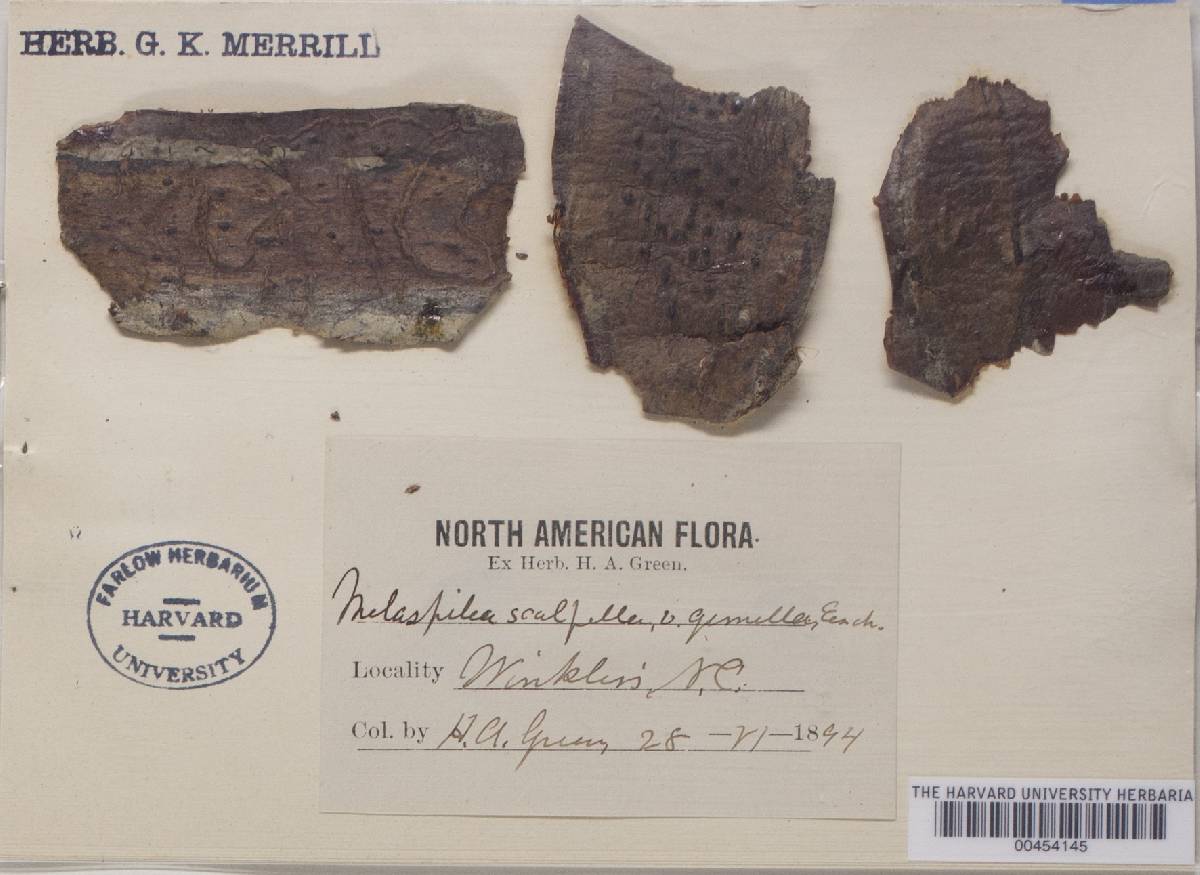 HERB. G. K. MERRILL
NORTH AMERICAN FLORA.
Ex Herb. H. A. Green.
Melaspilea scalpella, v. gemella, Esch.
Locality Winklers, N.C.
Col. by H. A. Green, 28 —VI—1894
FARLOW HERBARIUM
HARVARD
UNIVERSITY
THE HARVARD UNIVERSITY HERBARIA
00454145